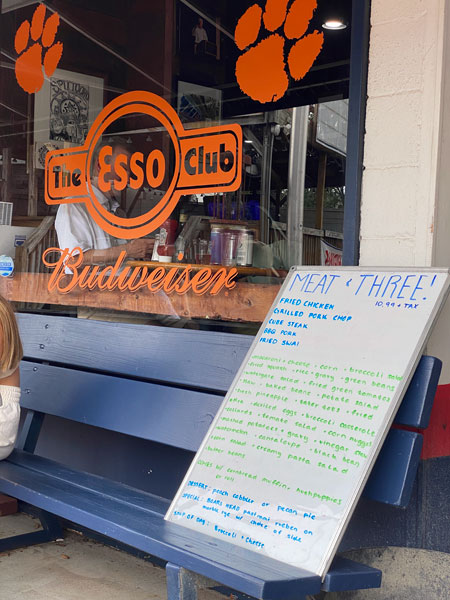 The Esso Club
Budweiser
MEAT & THREE!
10.99 + TAX
FRIED CHICKEN
GRILLED PORK CHOP
CUBE STEAK
BBQ PORK
FRIED SWAI
macaroni & cheese • corn • broccoli salad
fried squash • rice & gravy • green beans
fried green tomatoes
slaw • baked beans • potato salad
pineapple • tater tots • fried
okra • deviled eggs • broccoli casserole
collards • tomato salad • corn nuggets
mashed potatoes & gravy • vinegar slaw
watermelon • cantaloupe • black beans
salad • creamy pasta salad
butter beans
comes w/ cornbread muffin, hushpuppies
or roll
DESSERT: peach cobbler or pecan pie
SPECIAL: BOARS HEAD pastrami reuben on
marble rye w/ choice of side
SOUP OF DAY: Broccoli & Cheese